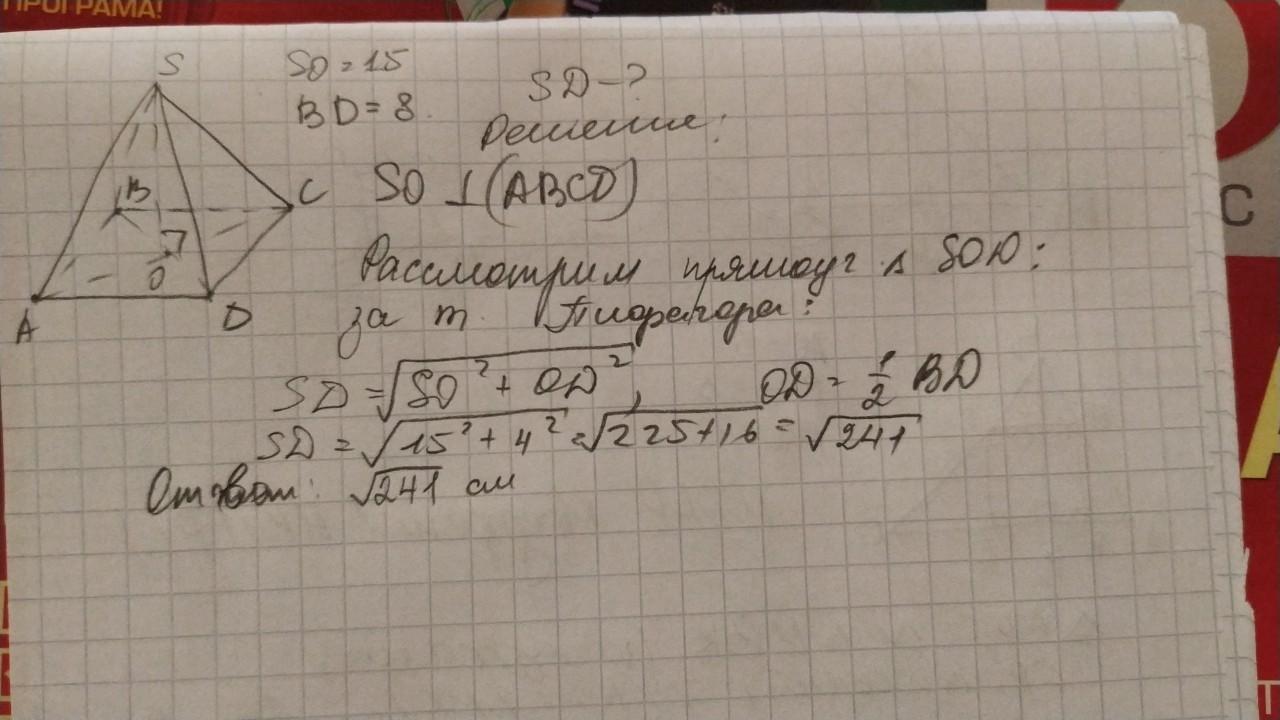 ПРОГРАМА!
S
SO = 15
SD - ?
BD = 8.
Решение:
B
C
SO ⊥ (ABCD)
O
A
D
Рассмотрим прямоуг Δ SOD:
за т. Пифагора:
SD = √SO² + OD², OD = 1/2 BD
SD = √15² + 4² = √225+16 = √241
Ответ: √241 см
С